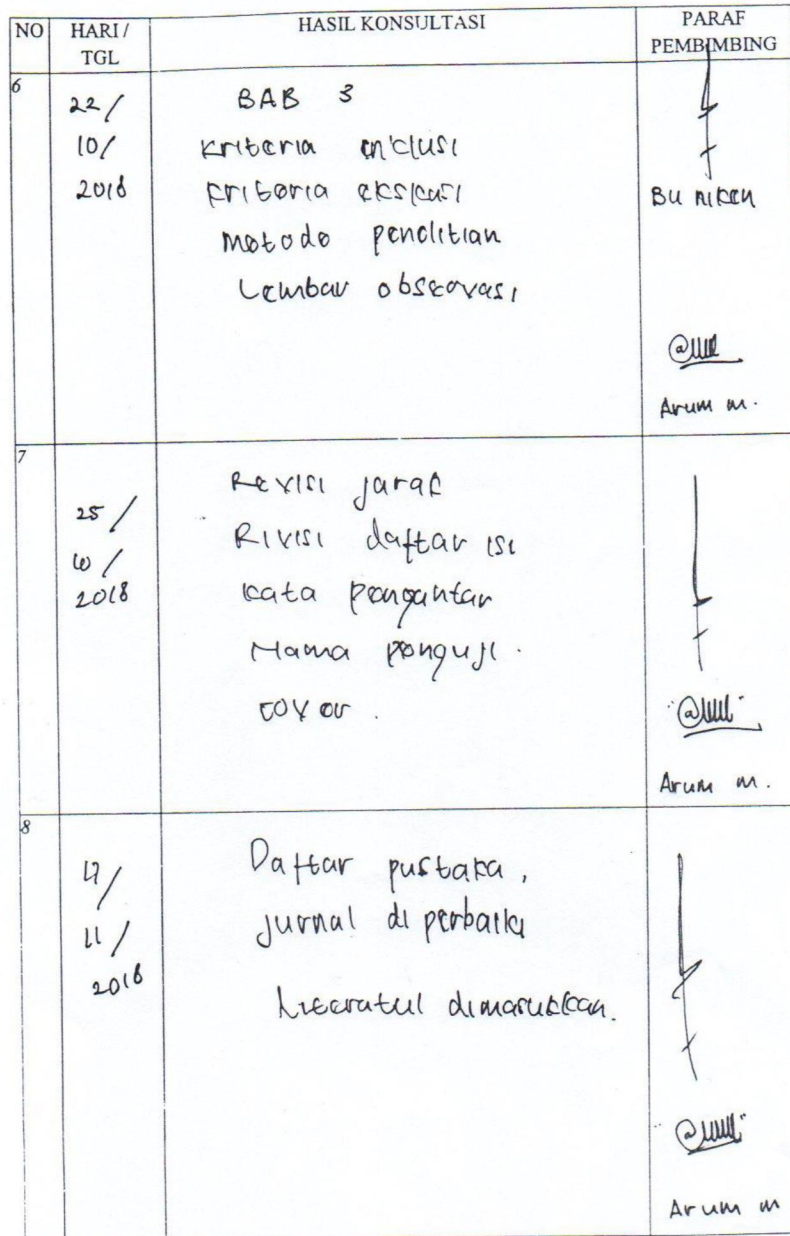 NO HARI / TGL HASIL KONSULTASI PARAF PEMBIMBING
6
22/
10/
2018
BAB 3
kriteria inclusi
kriteria ekslusi
Metode penelitian
Lembar observasi
Bu Niken
Arum m.
7
25 /
10 /
2018
Revisi jarak
Rivisi daftar isi
kata pengantar
Nama penguji.
cover.
Arum m.
8
17/
11/
2018
Daftar pustaka,
jurnal di perbaiki
Literatul dimasukkan.
Arum m